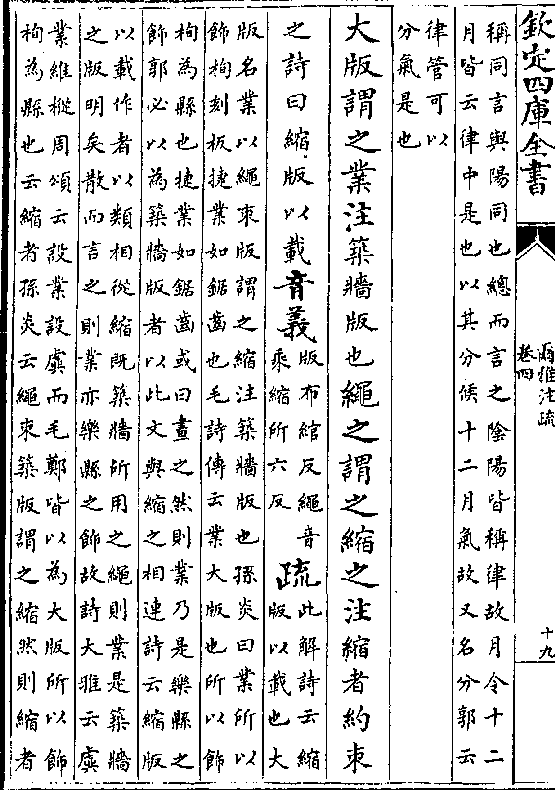 欽定四庫全書
爾雅注疏
卷四
十九
稱同言與陽同也總而言之陰陽皆稱律故月令十二
月皆云律中是也以其分候十二月氣故又名分郭云
律管可以
分氣是也
大版謂之業注築牆版也繩之謂之縮之注縮者約束
之詩曰縮版以載音義版布綰反繩音乘縮所六反疏此解詩云縮版以載也大
版名業以繩束版謂之縮注築牆版也孫炎曰業所以
飾栒刻板捷業如鋸齒也毛詩傳云業大版也所以飾
栒為縣也捷業如鋸齒或曰畫之然則業乃是樂縣之
飾郭必以為築牆版者以此文與縮之相連詩云縮版
以載作者以類相從縮既築牆所用之繩則業是築牆
之版明矣散而言之則業亦樂縣之飾故詩大雅云虡
業維樅周頌云設業設虡而毛鄭皆以為大版所以飾
栒為縣也云縮者孫炎云繩束築版謂之縮然則縮者